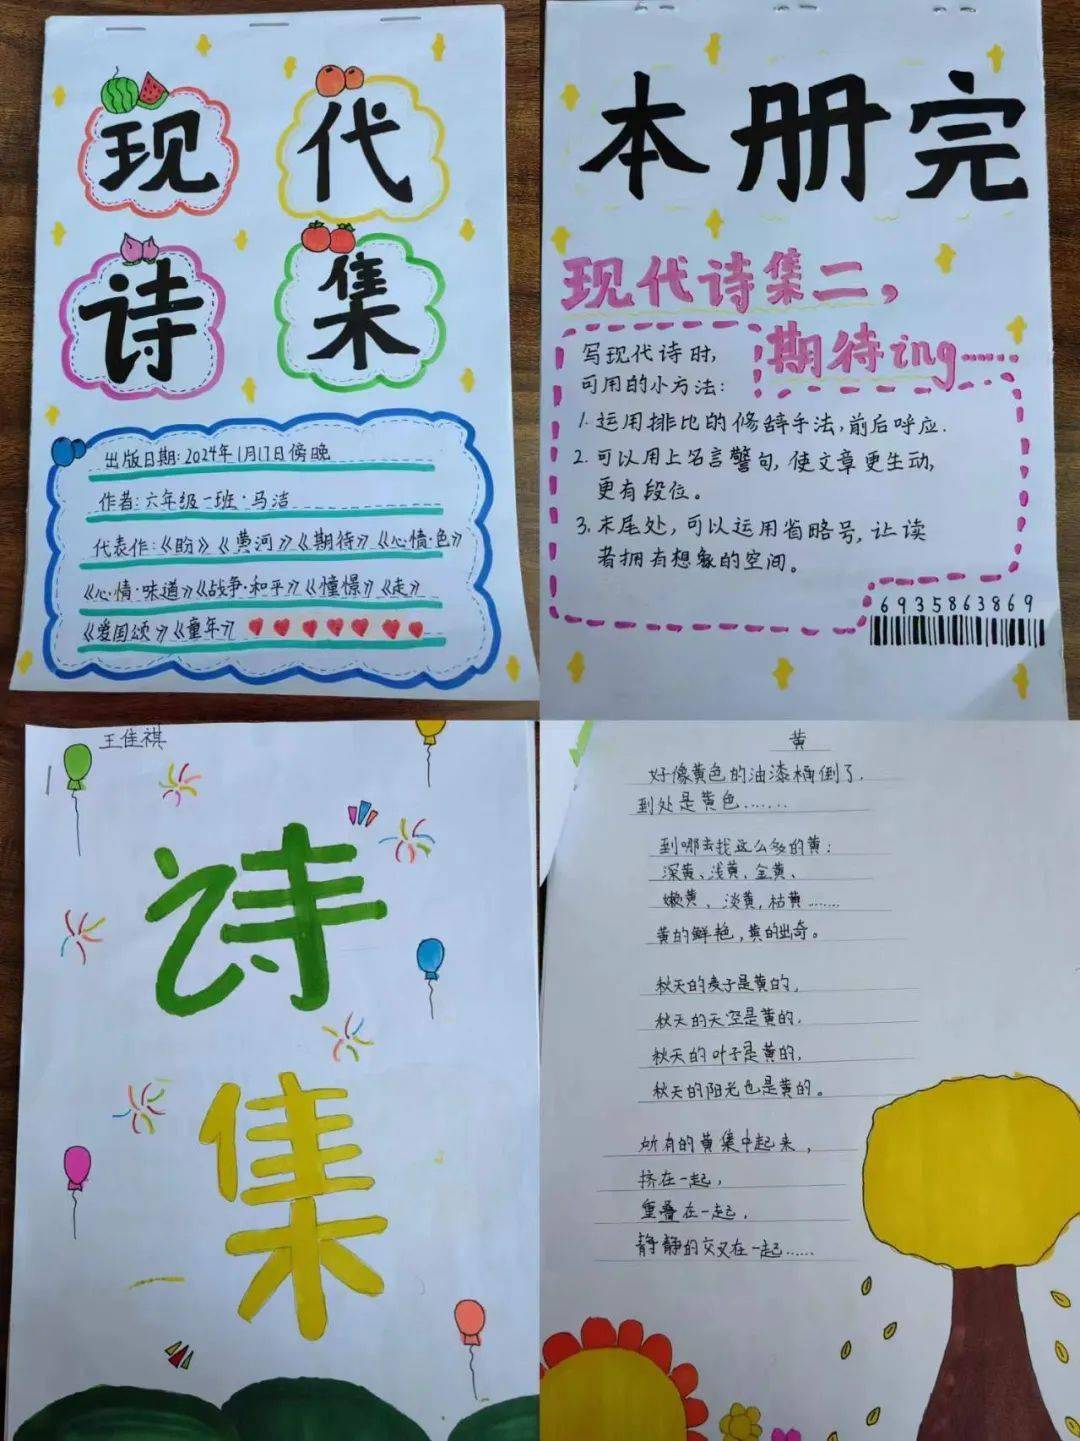 现代
诗集
出版日期:2024年1月17日傍晚
作者:六年级一班·马洁
代表作:《盼》《黄河》《期待》《心情·色》
《心情·味道》《战争·和平》《憧憬》《走》
《爱国颂》《童年》
本册完
现代诗集二,
期待ing……
写现代诗时,
可用的小方法:
1.运用排比的修辞手法,前后呼应.
2.可以用上名言警句,使文章更生动,
更有段位。
3.末尾处,可以运用省略号,让读
者拥有想象的空间。
6935863869
王佳祺
诗
集
黄
好像黄色的油漆桶倒了.
到处是黄色.......
到哪去找这么多的黄:
深黄、浅黄、金黄、
嫩黄、淡黄,枯黄……
黄的鲜艳,黄的出奇。
秋天的麦子是黄的,
秋天的天空是黄的.
秋天的叶子是黄的,
秋天的阳光也是黄的。
所有的黄集中起来,
挤在一起,
重叠在一起.
静静的交叉在一起……